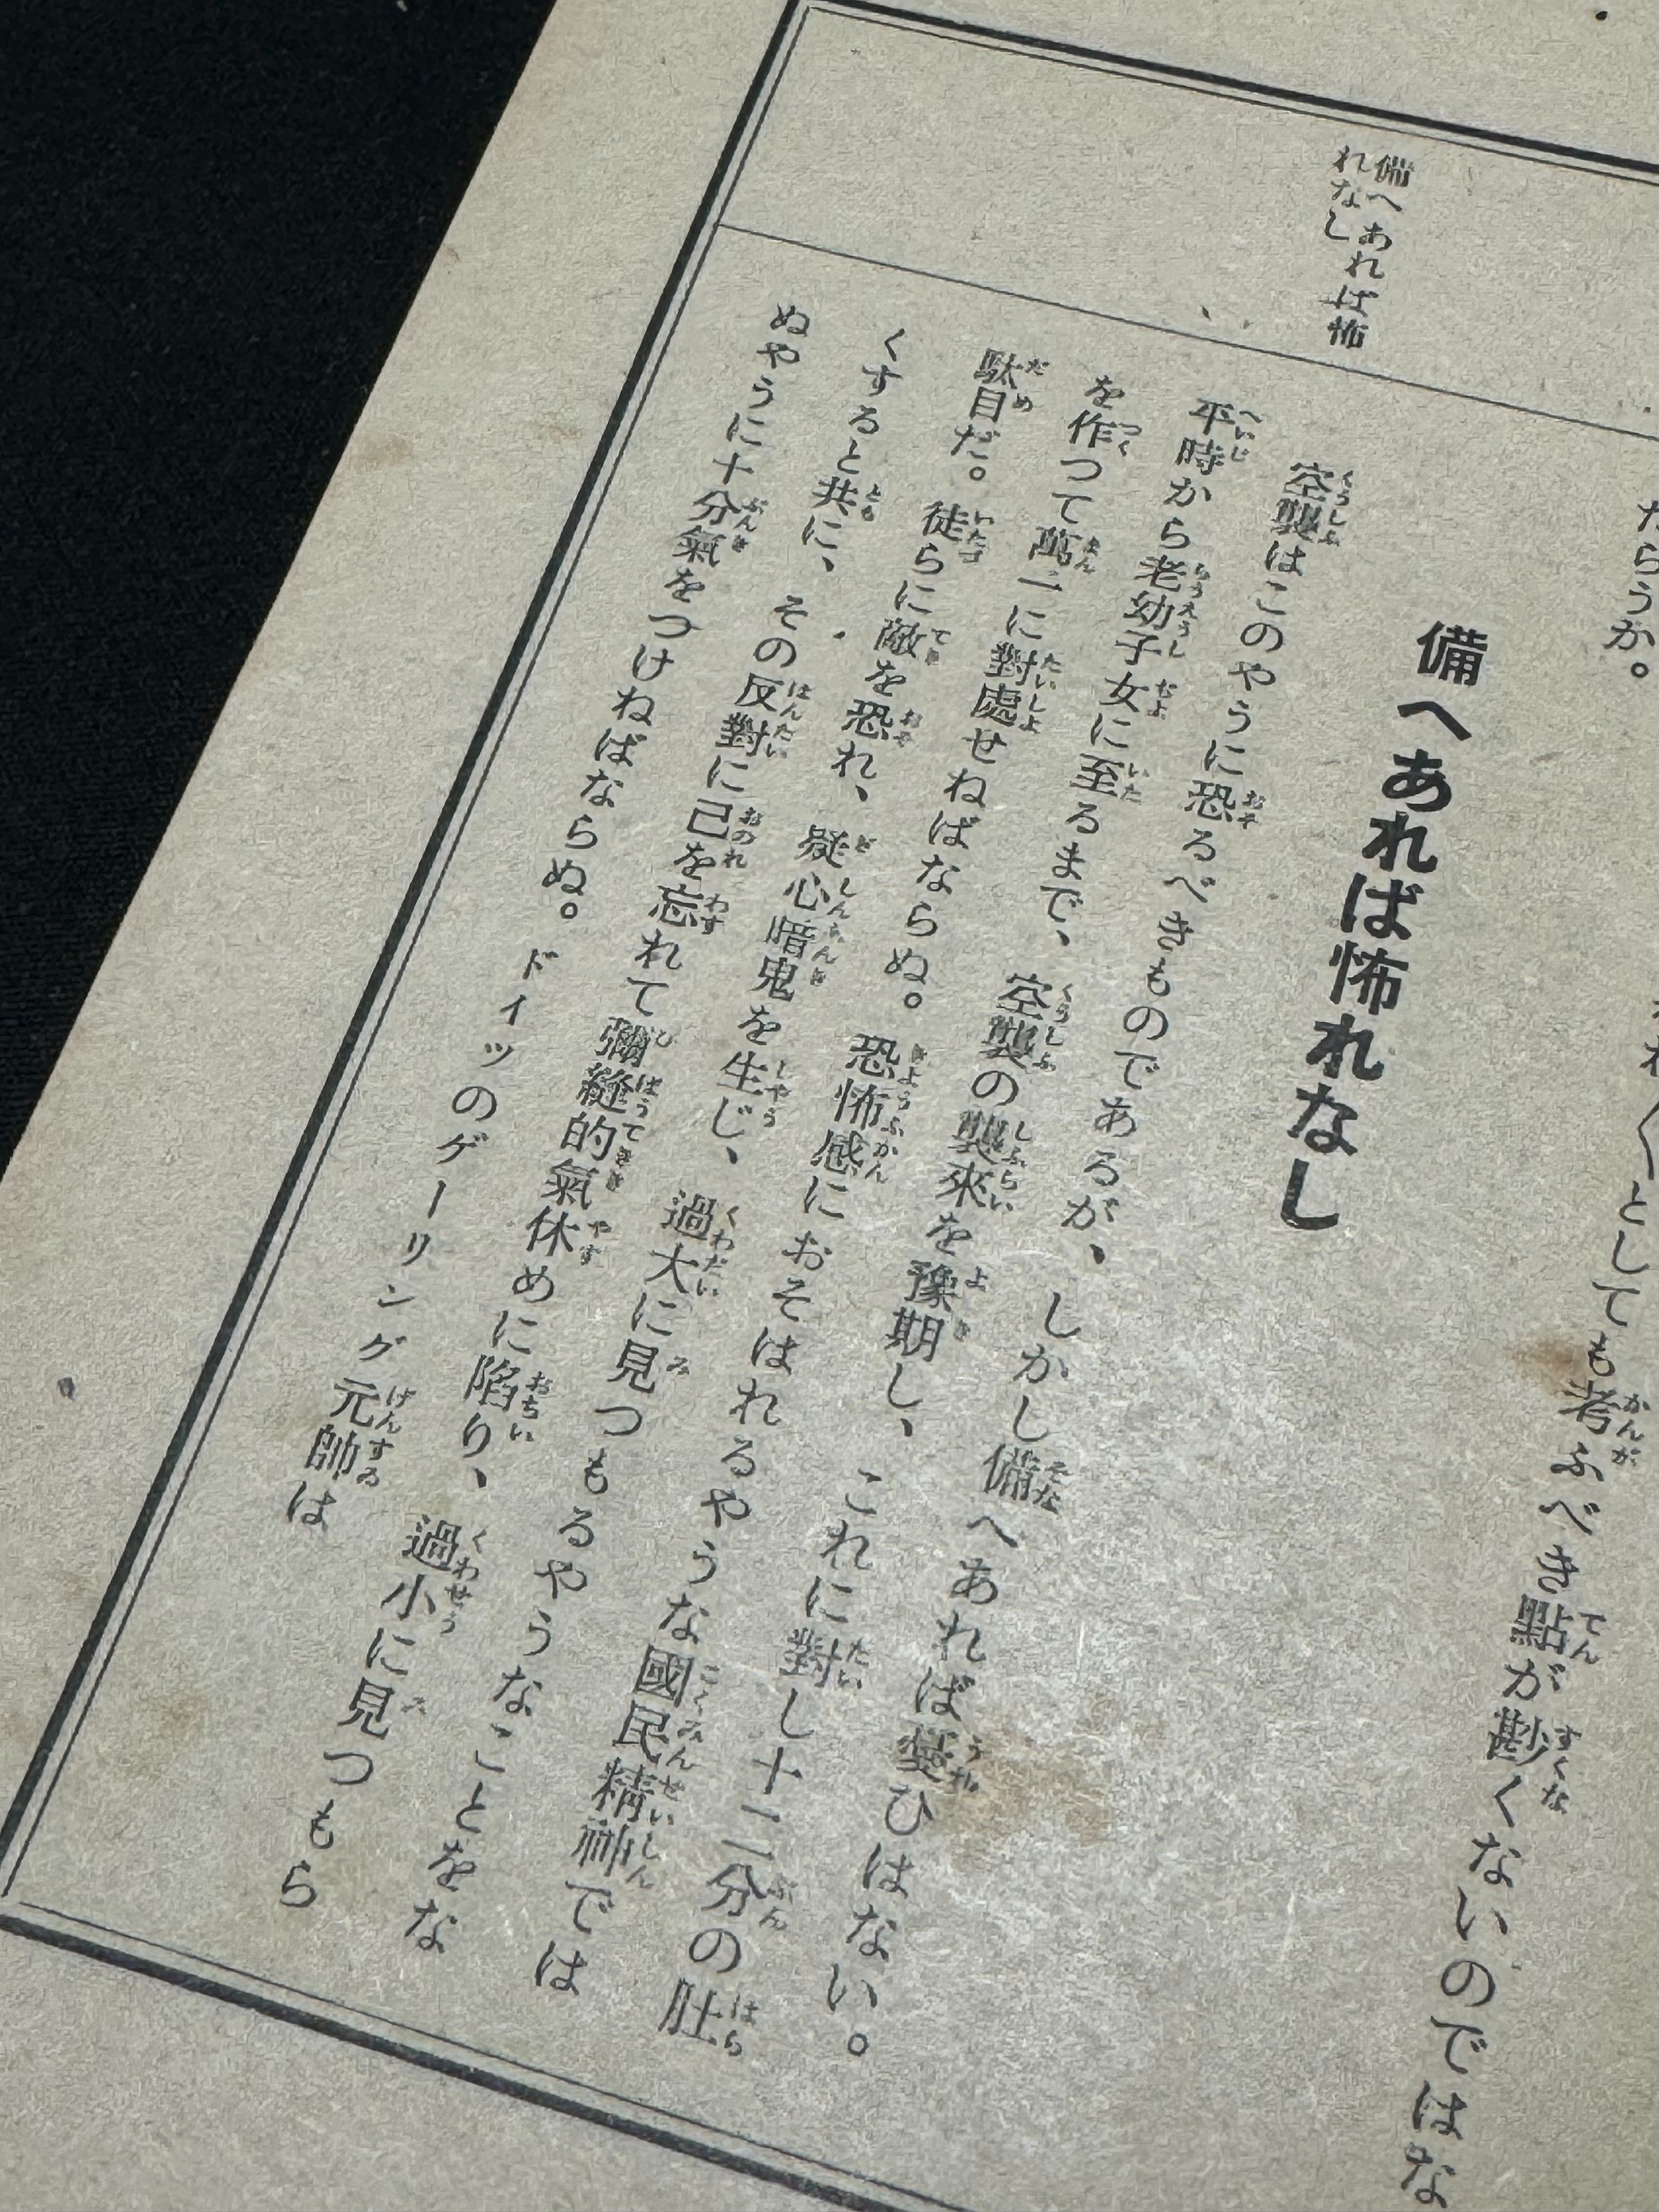 としても考ふべき點が尠くないのではな
だらうか。
備へあれば怖
れなし
備へあれば怖れなし
空襲はこのやうに恐るべきものであるが、しかし備へあれば憂ひはない。
平時から老幼子女に至るまで、空襲の襲來を豫期し、これに對し十二分の肚
を作つて萬一に對處せねばならぬ。恐怖感におそはれるやうな國民精神では
駄目だ。徒らに敵を恐れ、疑心暗鬼を生じ、過大に見つもるやうなことをな
くすると共に、その反對に己を忘れて彌縫的氣休めに陷り、過小に見つもら
ぬやうに十分氣をつけねばならぬ。ドイツのゲーリング元帥は